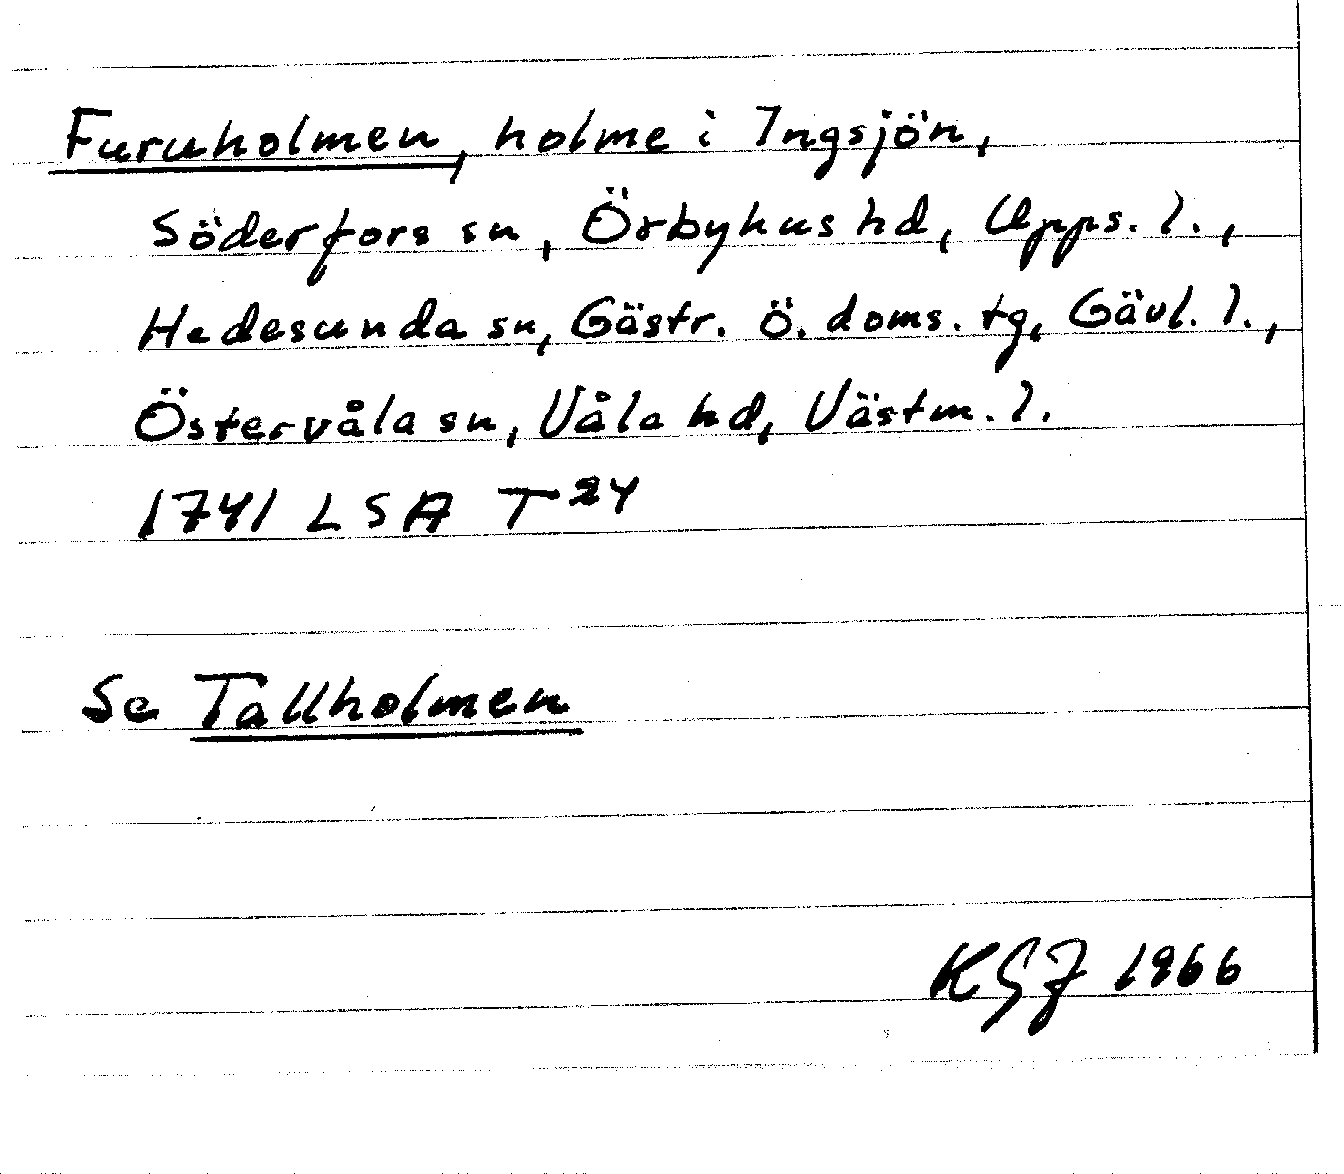 Furuholmen, holme i Ingsjön,
Söderfors sn, Örbyhus hd, Upps. l.,
Hedesunda sn, Gästr. ö. doms. tg, Gävl. l.,
Östervåla sn, Våla hd, Västm. l.
1741 LSA T 24
Se Tallholmen
KGJ 1966